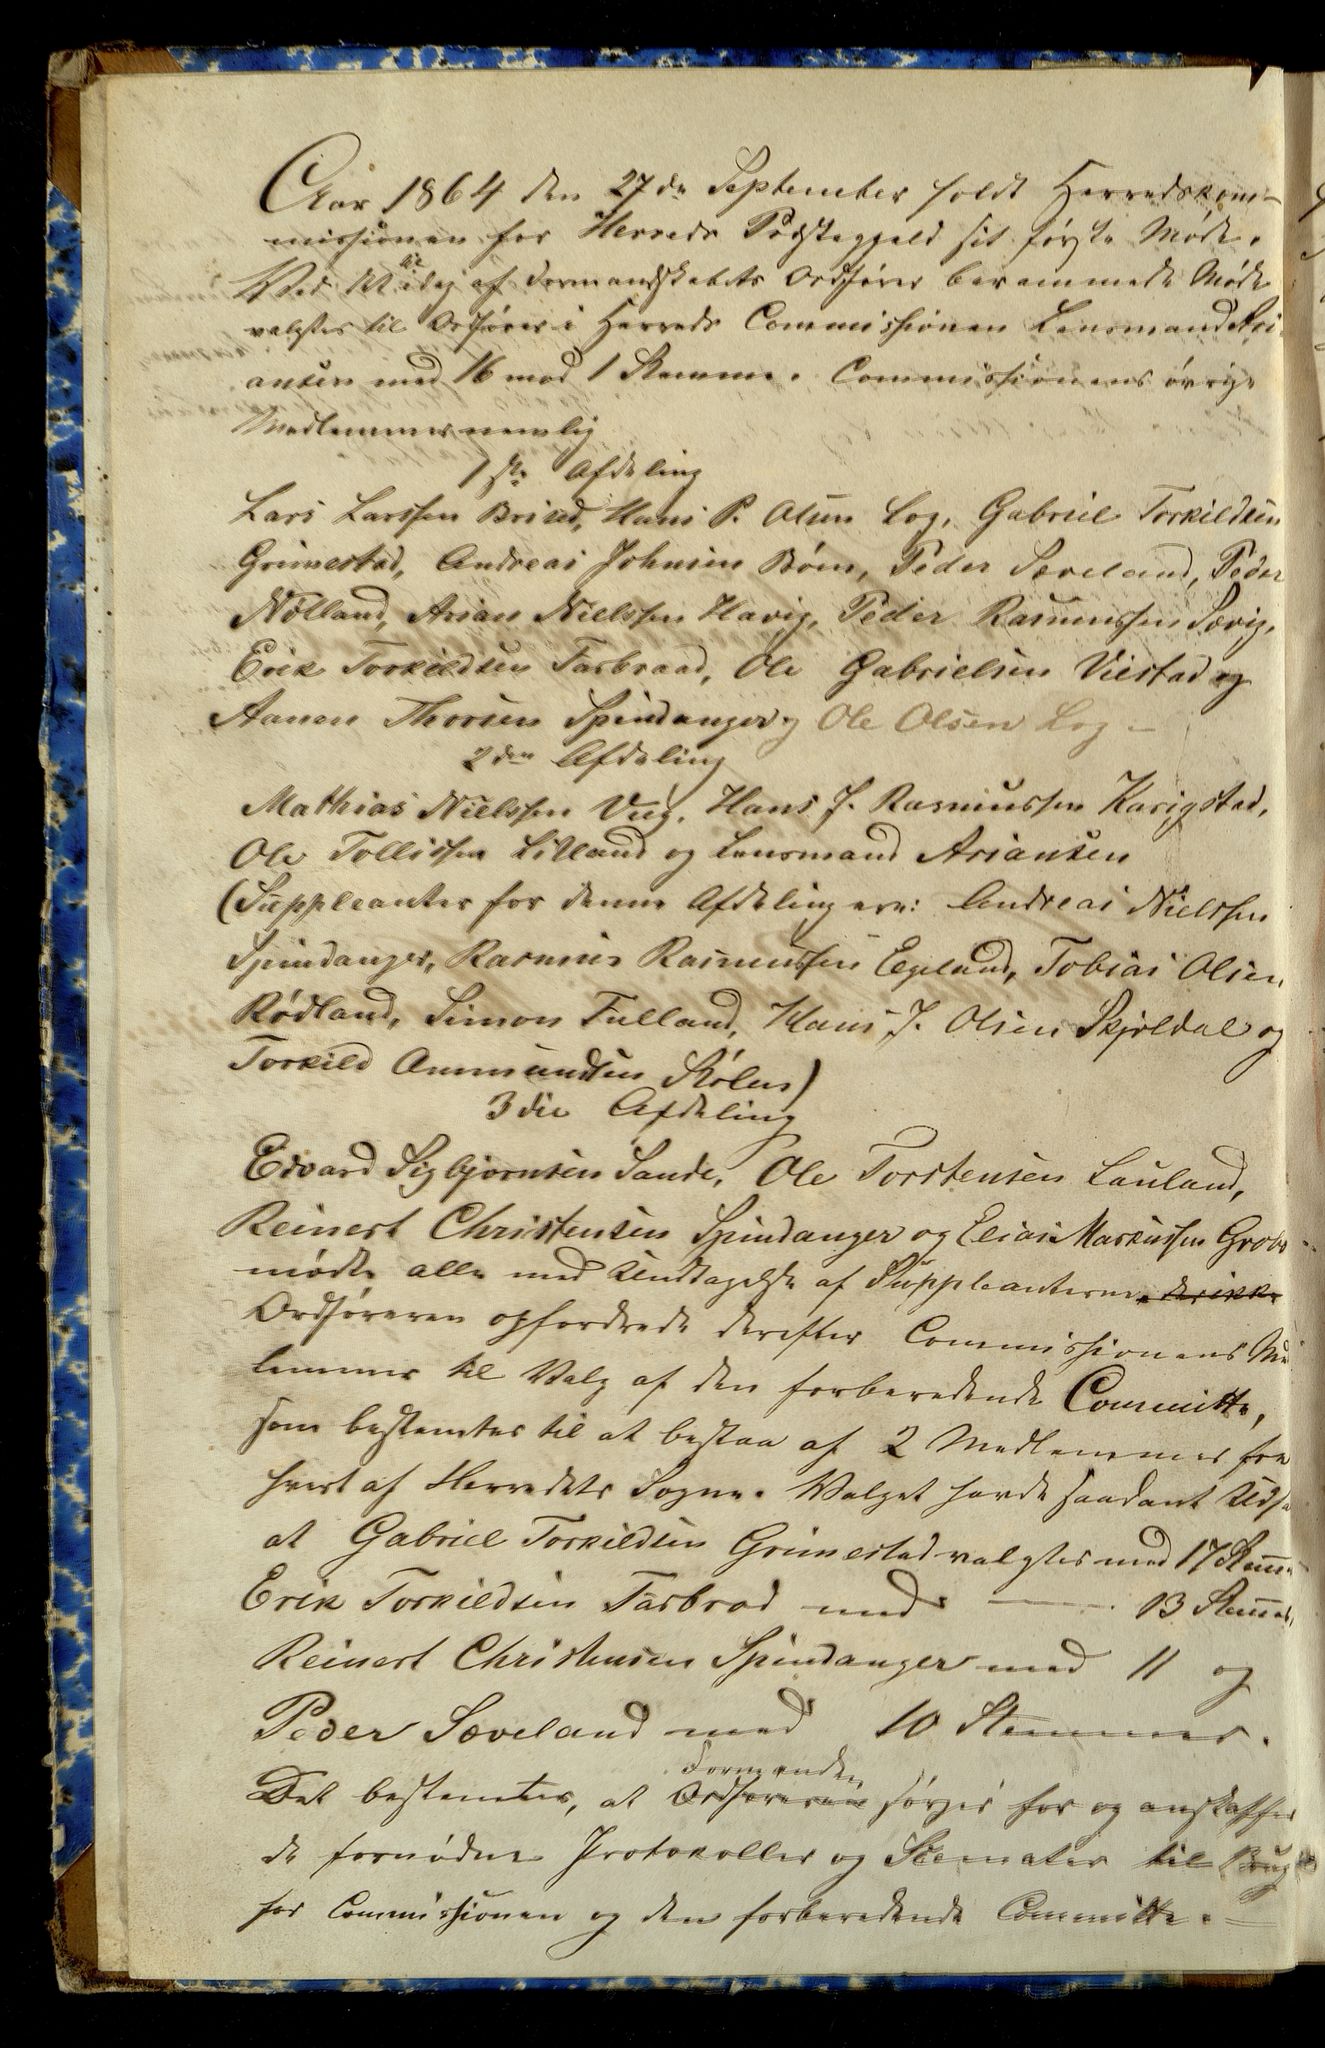 Aar 1864 den 27de September holdt Herredskom-
missionen for Herreds Præstegjeld sit første Møde.
Ved det til idag af Formandskabets Ordfører berammede Møde
valgtes til Ordfører i Herreds Commissionen Lensmand Ari
ansen med 16 mod 1 Stemme. Commissionens øvrige
Medlemmer nemlig
1ste Afdeling
Lars Larssen Briseid, Hans P. Olsen Log, Gabriel Torkildsen
Grimestad, Andreas Johnsen Bøen, Peder Sæveland, Peder
Nølland, Arian Nielssen Havig, Peder Rasmussen Sævig,
Erik Torkildsen Farbraad, Ole Gabrielsen Viestad og
Aanen Thorsen Spindanger og Ole Olsen Log -
2den Afdeling
Mathias Nielssen Vieg, Hans J. Rasmussen Karigstad,
Ole Tollissen Lilland og Lensmand Ariansen
(Suppleanter for denne Afdeling ere: Andreas Nielssen
Spindanger, Rasmus Rasmussen Egeland, Tobias Olsen
Rødland, Simon Fulland, Hans J. Olsen Skjoldal og
Torkild Ammundsen Stølen)
3die Afdeling
Edvard Sigbjørnsen Sande, Ole Torstensen Lauland,
Reinert Christensen Spindanger og Elias Markussen Grobs
mødte alle med Undtagelse af Suppleanterne, der ikke
Ordføreren opfordrede derefter Commissionens Med
lemmer til Valg af den forberedende Committe,
som bestemtes til at bestaa af 2 Medlemmer fra
hvert af Herredets Sogne. Valget havde saadant Udfa
at Gabriel Torkildsen Grimestad valgtes med 17 Stemm
Erik Torkildsen Farbrod med - 13 Stemmer,
Reinert Christensen Spindanger med 11 og
Peder Sæveland med 10 Stemmer.
Formanden
Det bestemtes, at Ordføreren sørger for og anskaffer
de fornødne Protokoller og Scemater til Brug
for Commissionen og den forberedende Committe. =